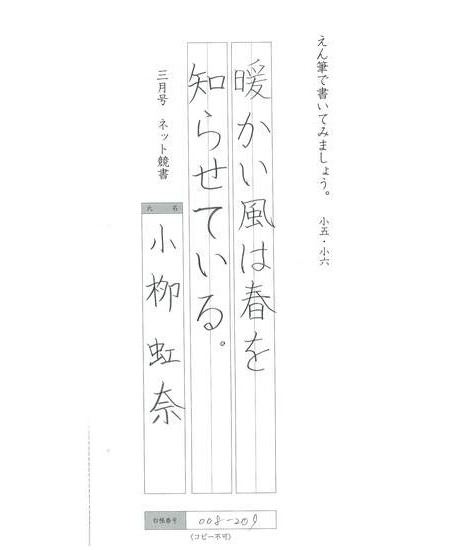 えん筆で書いてみましょう。
小五・小六
暖かい風は春を
知らせている。
三月号 ネット競書
氏名
小柳虹奈
台帳番号
008-209
(コピー不可)